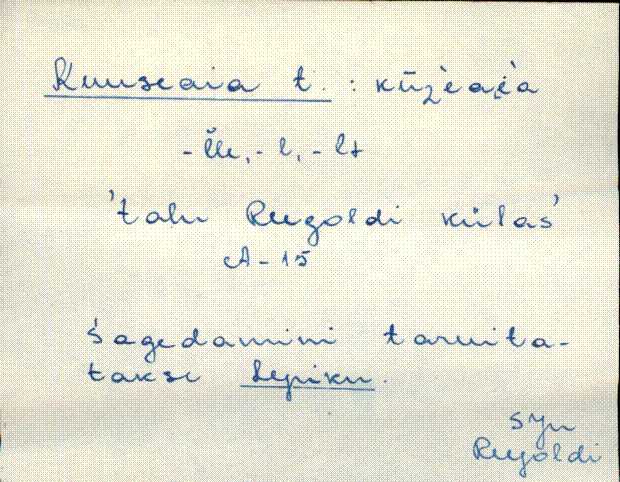 Kuuseaia t. : kūžeai̯a
-l̆le, -l, -lt
'talu Rugoldi külas'
A-15
Sagedamini tarvita-
takse Lepiku.
Syn
Rugoldi